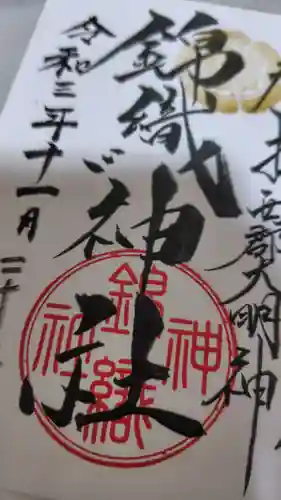 奉拝
西郡大明神
錦織神社
令和三年十一月二十
錦織神社